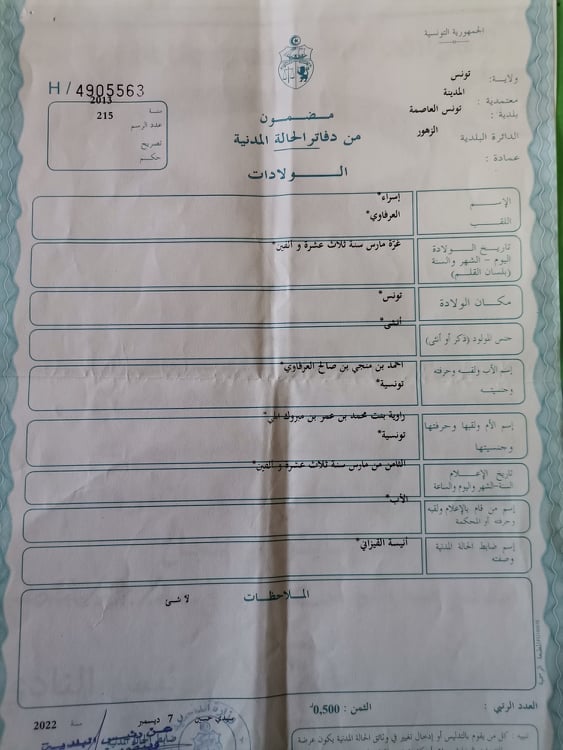 الجمهورية التونسية
ولاية: تونس
معتمدية: المدينة
بلدية: تونس العاصمة
الدائرة البلدية الزهور
عمادة:
H/4905563
سنة 2013
عدد الرسم 215
تصريح
حكم
مضمون
من دفاتر الحالة المدنية
الولادات
الإسم إسراء*
اللقب العرفاوي*
تاريخ الولادة
اليوم - الشهر والسنة
(بلسان القلم)
غرّة مارس سنة ثلاث عشرة و ألفين*
مكان الولادة تونس*
جنس المولود (ذكر أو أنثى) أنثى*
إسم الأب ولقبه وحرفته احمد بن منجي بن صالح العرفاوي*
وجنسيته تونسية*
إسم الأم ولقبها وحرفتها راوية بنت محمد بن عمر بن مبروك
وجنسيتها تونسية*
تاريخ الإعلام
السنة-الشهر واليوم والساعة
الثامن من مارس سنة ثلاث عشرة و ألفين*
إسم من قام بالإعلام ولقبه
وحرفته أو المحكمة
الأب*
إسم ضابط الحالة المدنية
وصفته
أنيسة القيزاني*
الملاحظات
لا شئ
العدد الرتبي:
الثمن: 0,500
سيدي حسين 7 ديسمبر سنة 2022
ضابط الحالة المدنية
تنبيه: كل من يقوم بالتدليس أو إدخال تغيير في وثائق الحالة المدنية يكون عرضة